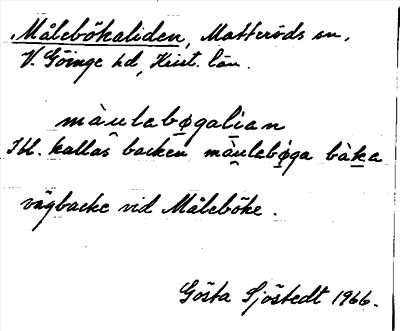 Målebökaliden, Matteröds sn,
V. Göinge hd, Krist. län.
màulabøgalian
Ibl. kallas backen màulabøga bàka
vägbacke vid Måleböke.
Gösta Sjöstedt 1966.